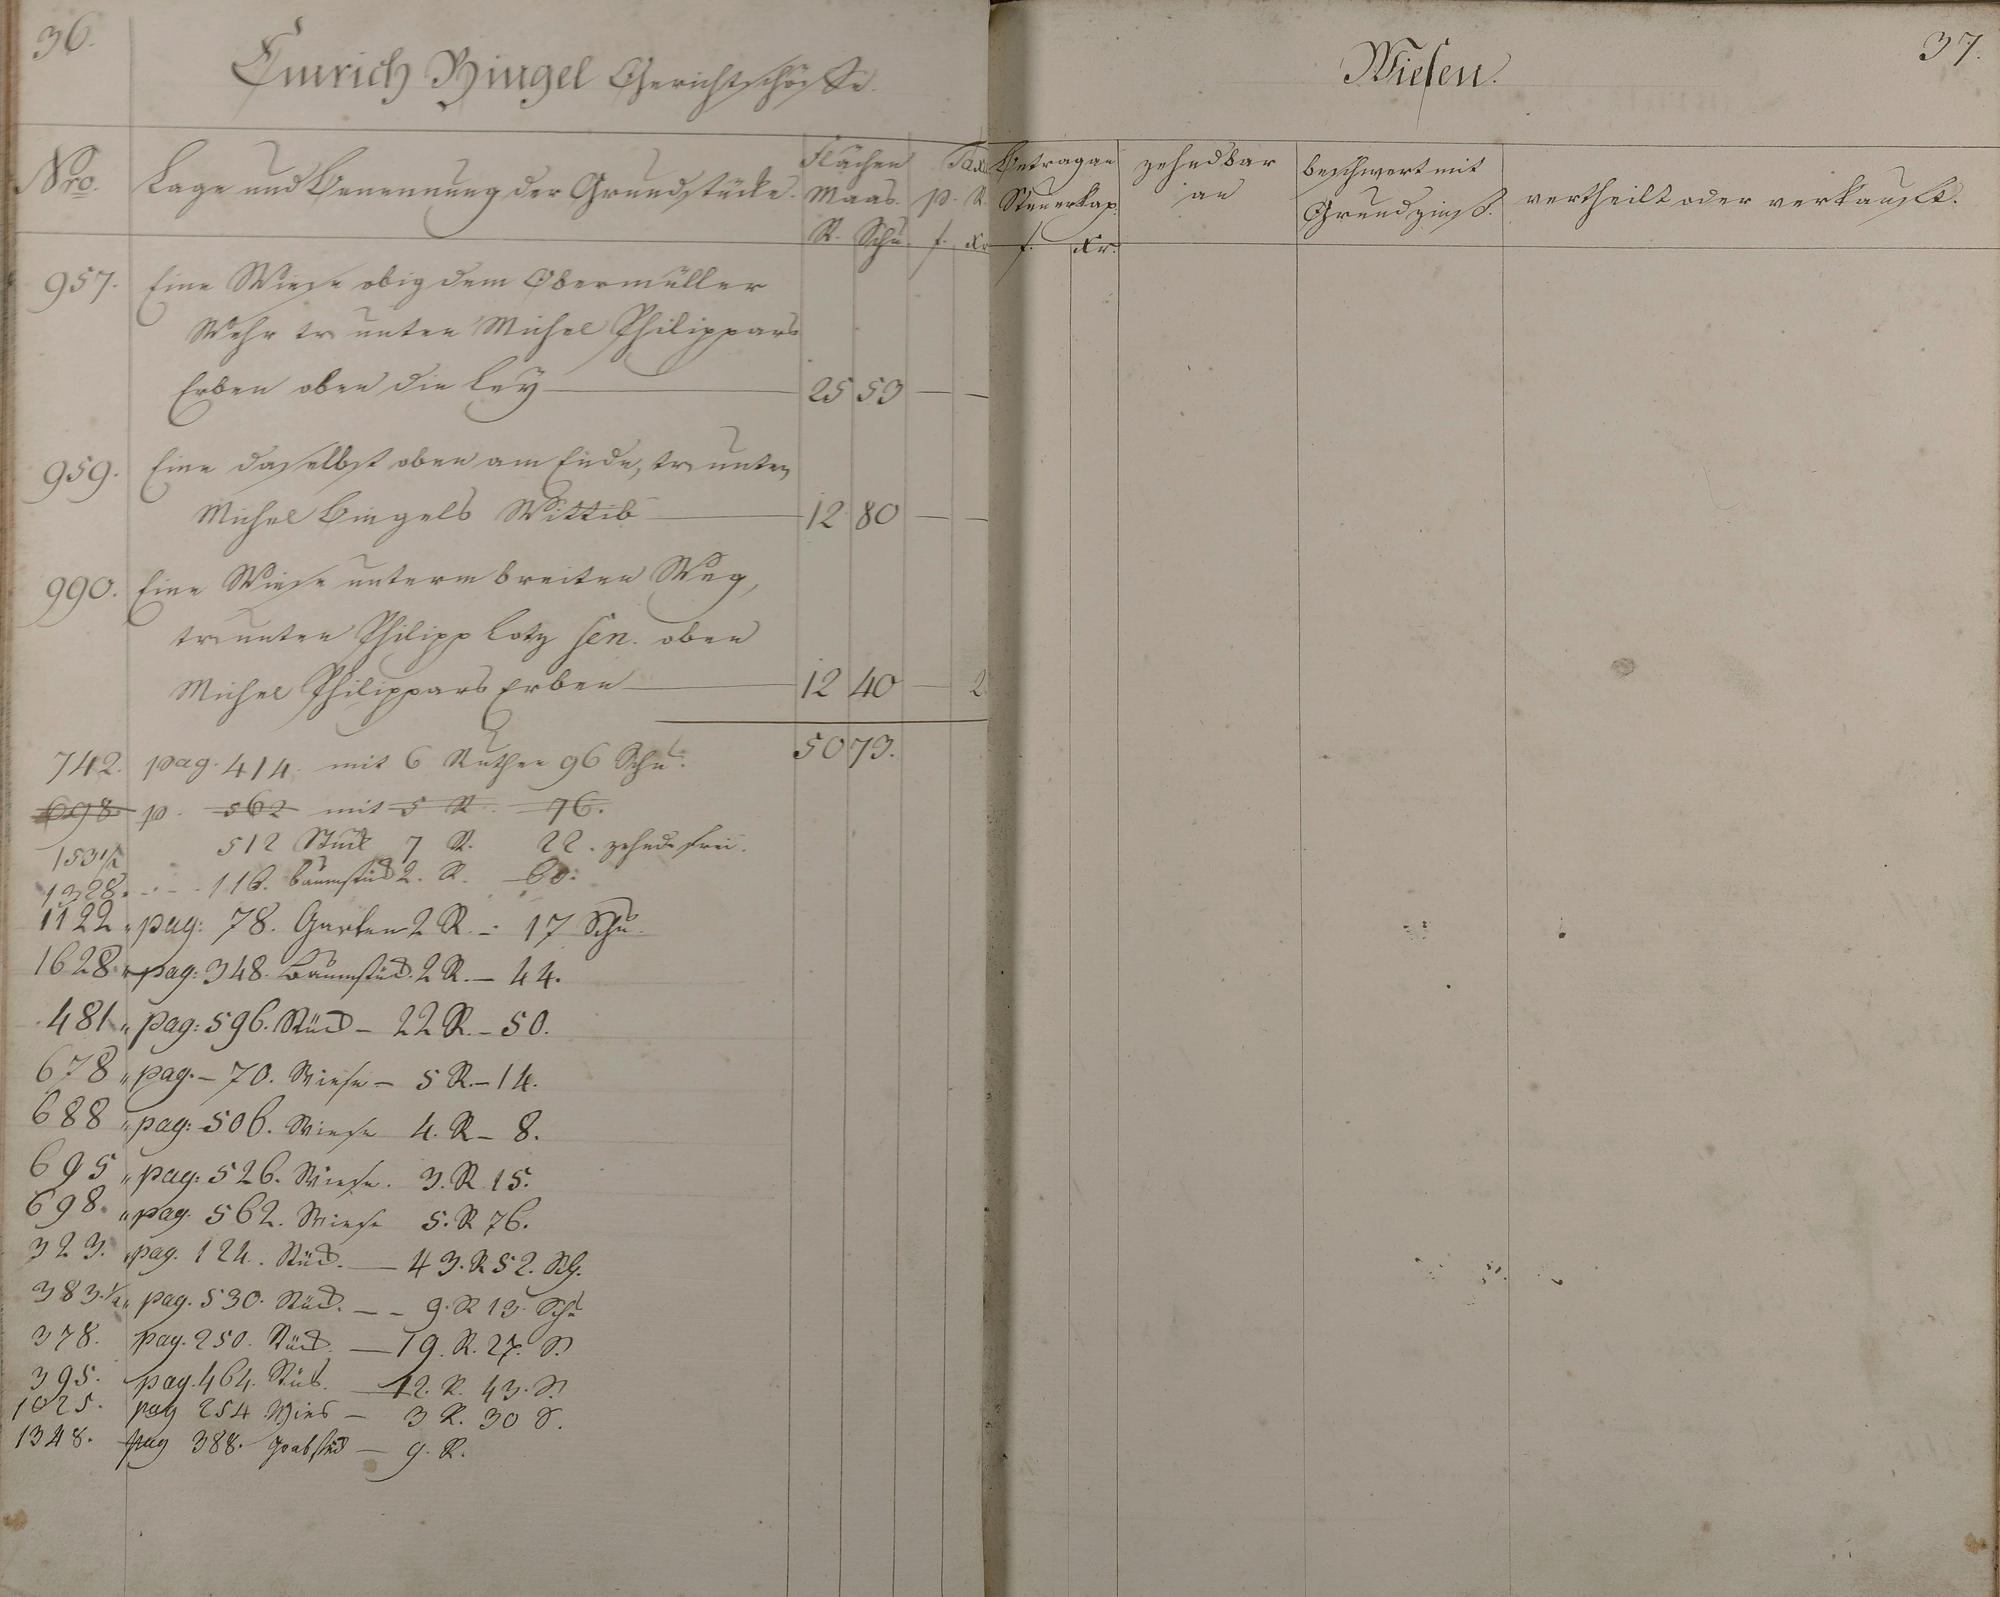 36.
Emrich Bingel Gerichtschöffe.
Nro. Lage und Benennung der Grundstücke. Flächen Maas. Tax p. R.
R. Schu. f. Xr
957. Eine Wiese obig dem Obermüller
Wehr tr unten Michel Philippars
Erben oben die Ley — 25 53 — —
959. Eine daselbst oben am Ende, tr unten
Michel Bingels Wittib — 12 80 — —
990. Eine Wiese unterm breiten Weg,
tr unten Philipp Lotz sen. oben
Michel Philippars Erben — 12 40 — 2
50 73.
742. pag. 414. mit 6 Ruthen 96 Schu.
698. p. 562 mit 5 R. 76.
153 1/2 512 Stück 7 R. 22. zehndfrei.
1328. 116. Baumstück 2. R. 60.
1122 " pag: 78. Garten 2 R. - 17 Schu.
1628. " pag: 348. Baumstück. 2 R. - 44.
481 " pag: 596. Stück - 22 R. - 50.
678 " pag. - 70. Wiese - 5 R. - 14.
688 " pag: 506. Wiese 4. R - 8.
695 " pag: 526. Wiese. 3. R 15.
698. " pag. 562. Wiese 5. R 76.
323. " pag. 124. Stück. — 43. R 52. Sch.
383. 1/2 " pag. 530. Stück. — - 9. R 13. Schu
378. pag. 250. Stück. — 19. R. 27. S.
395. pag. 464. Stück. — 12. R. 43. S.
1025. pag 254 Wies — 3 R. 30 S.
1348. pag 388. Grabstück — 9. R.
37.
Wiesen.
Betrag an Steuerkap. zehndbar an beschwert mit Grundzinß. vertheilt oder verkauft.
f. Xr.